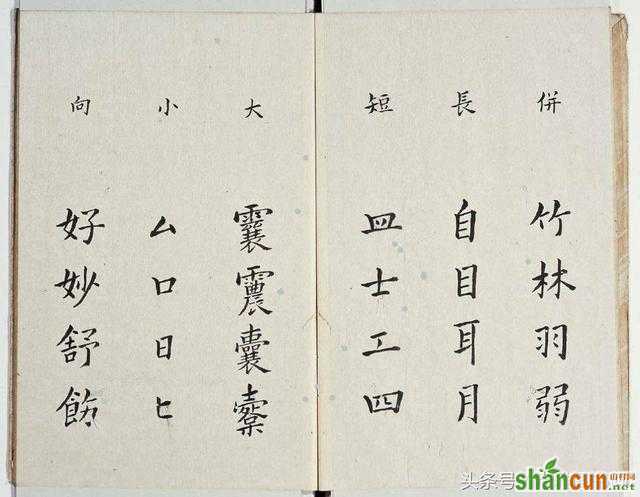 併
竹林羽弱
長
自目耳月
短
皿士工四
大
囊
小
厶口日匕
向
好妙舒飭
头条号
shancun
山村网
.net